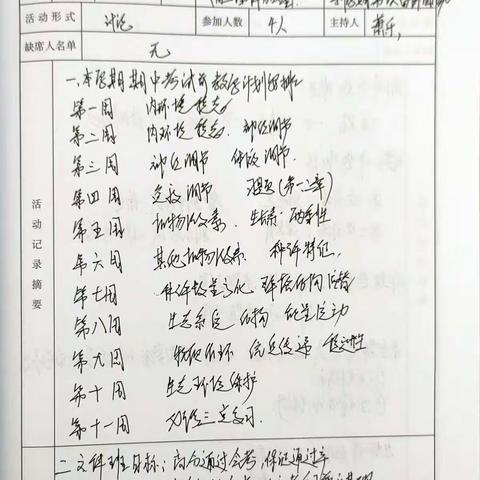 活动形式 讨论 参加人数 4人 主持人
缺席人名单 无
活动记录摘要
一.本学期期中考试前教学计划安排
第一周 内环境稳态
第二周 内环境稳态. 神经调节
第三周 神经调节 体液调节.
第四周 免疫调节 习题(第一二章)
第五周 植物激素. 生长素 两重性
第六周 其他植物激素. 种群特征,
第七周 种群数量变化. 群落结构 演替
第八周 生态系统 结构 能量流动
第九周 物质循环 信息传递 稳定性
第十周 生态环境保护
第十一周 复习.
二.文科班目标: 通过会考,保证通过率